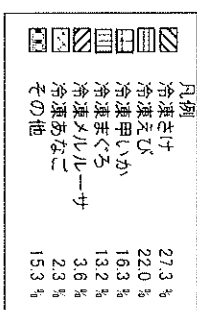 凡例
冷凍さけ 27.3 %
冷凍えび 22.0 %
冷凍甲いか 16.3 %
冷凍まぐろ 13.2 %
冷凍メルルーサ 3.6 %
冷凍あなご 2.3 %
その他 15.3 %